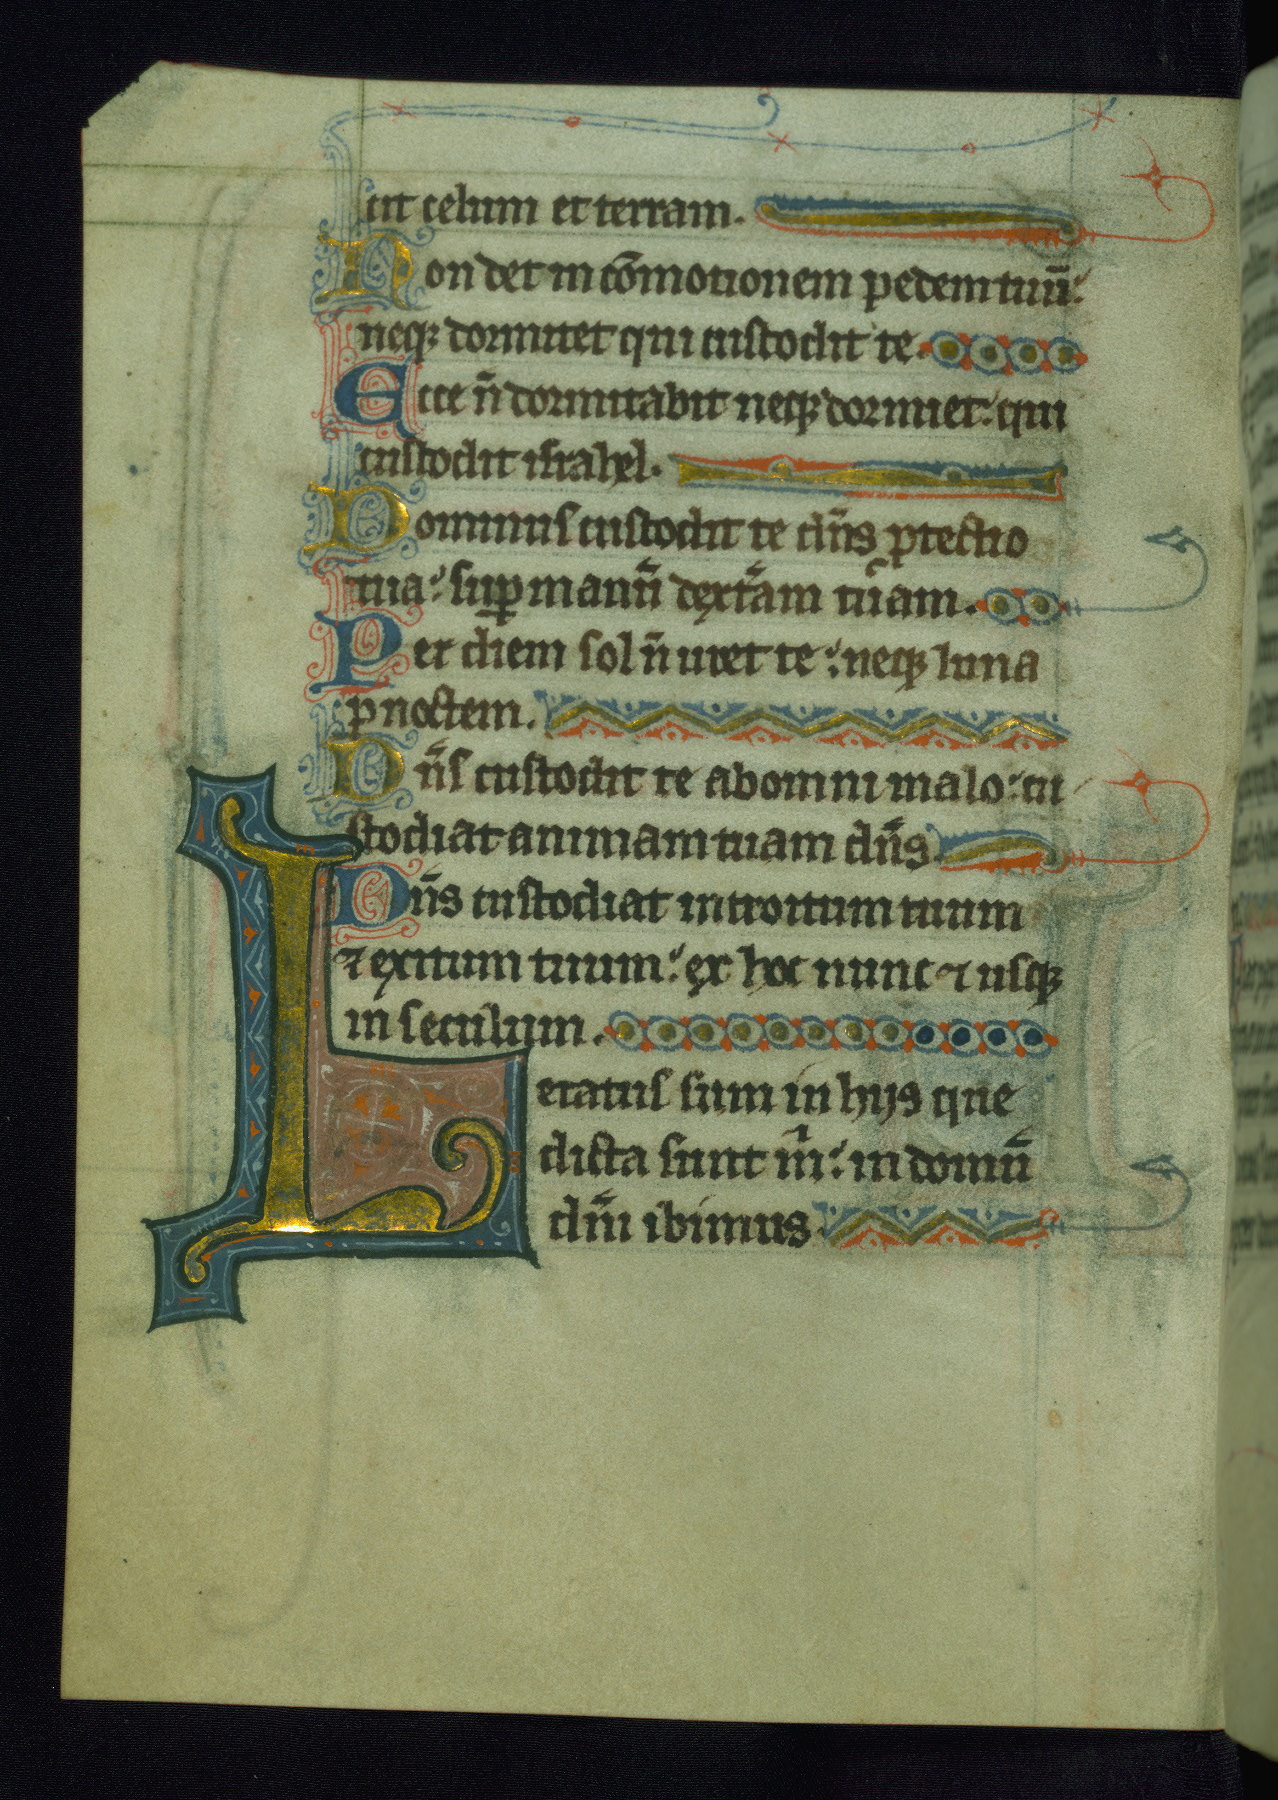 cit celum et terram.
Non det in cōmotionem pedem tuū:
neqꝫ dormitet qui custodit te.
Ecce n̄ dormitabit neqꝫ dormiet: qui
custodit israhel.
Dominus custodit te dn̄s ꝓtectio
tua: suꝑ manū dextam tuam.
Per diem sol n̄ uret te: neqꝫ luna
ꝑ noctem.
Dn̄s custodit te ab omni malo: cu
stodiat animam tuam dn̄s
Dn̄s custodiat introitum tuum
⁊ exitum tuum: ex hoc nunc ⁊ usqꝫ
in seculum.
Letatus sum in hijs que
dicta sunt m̄: in domū
dn̄i ibimus